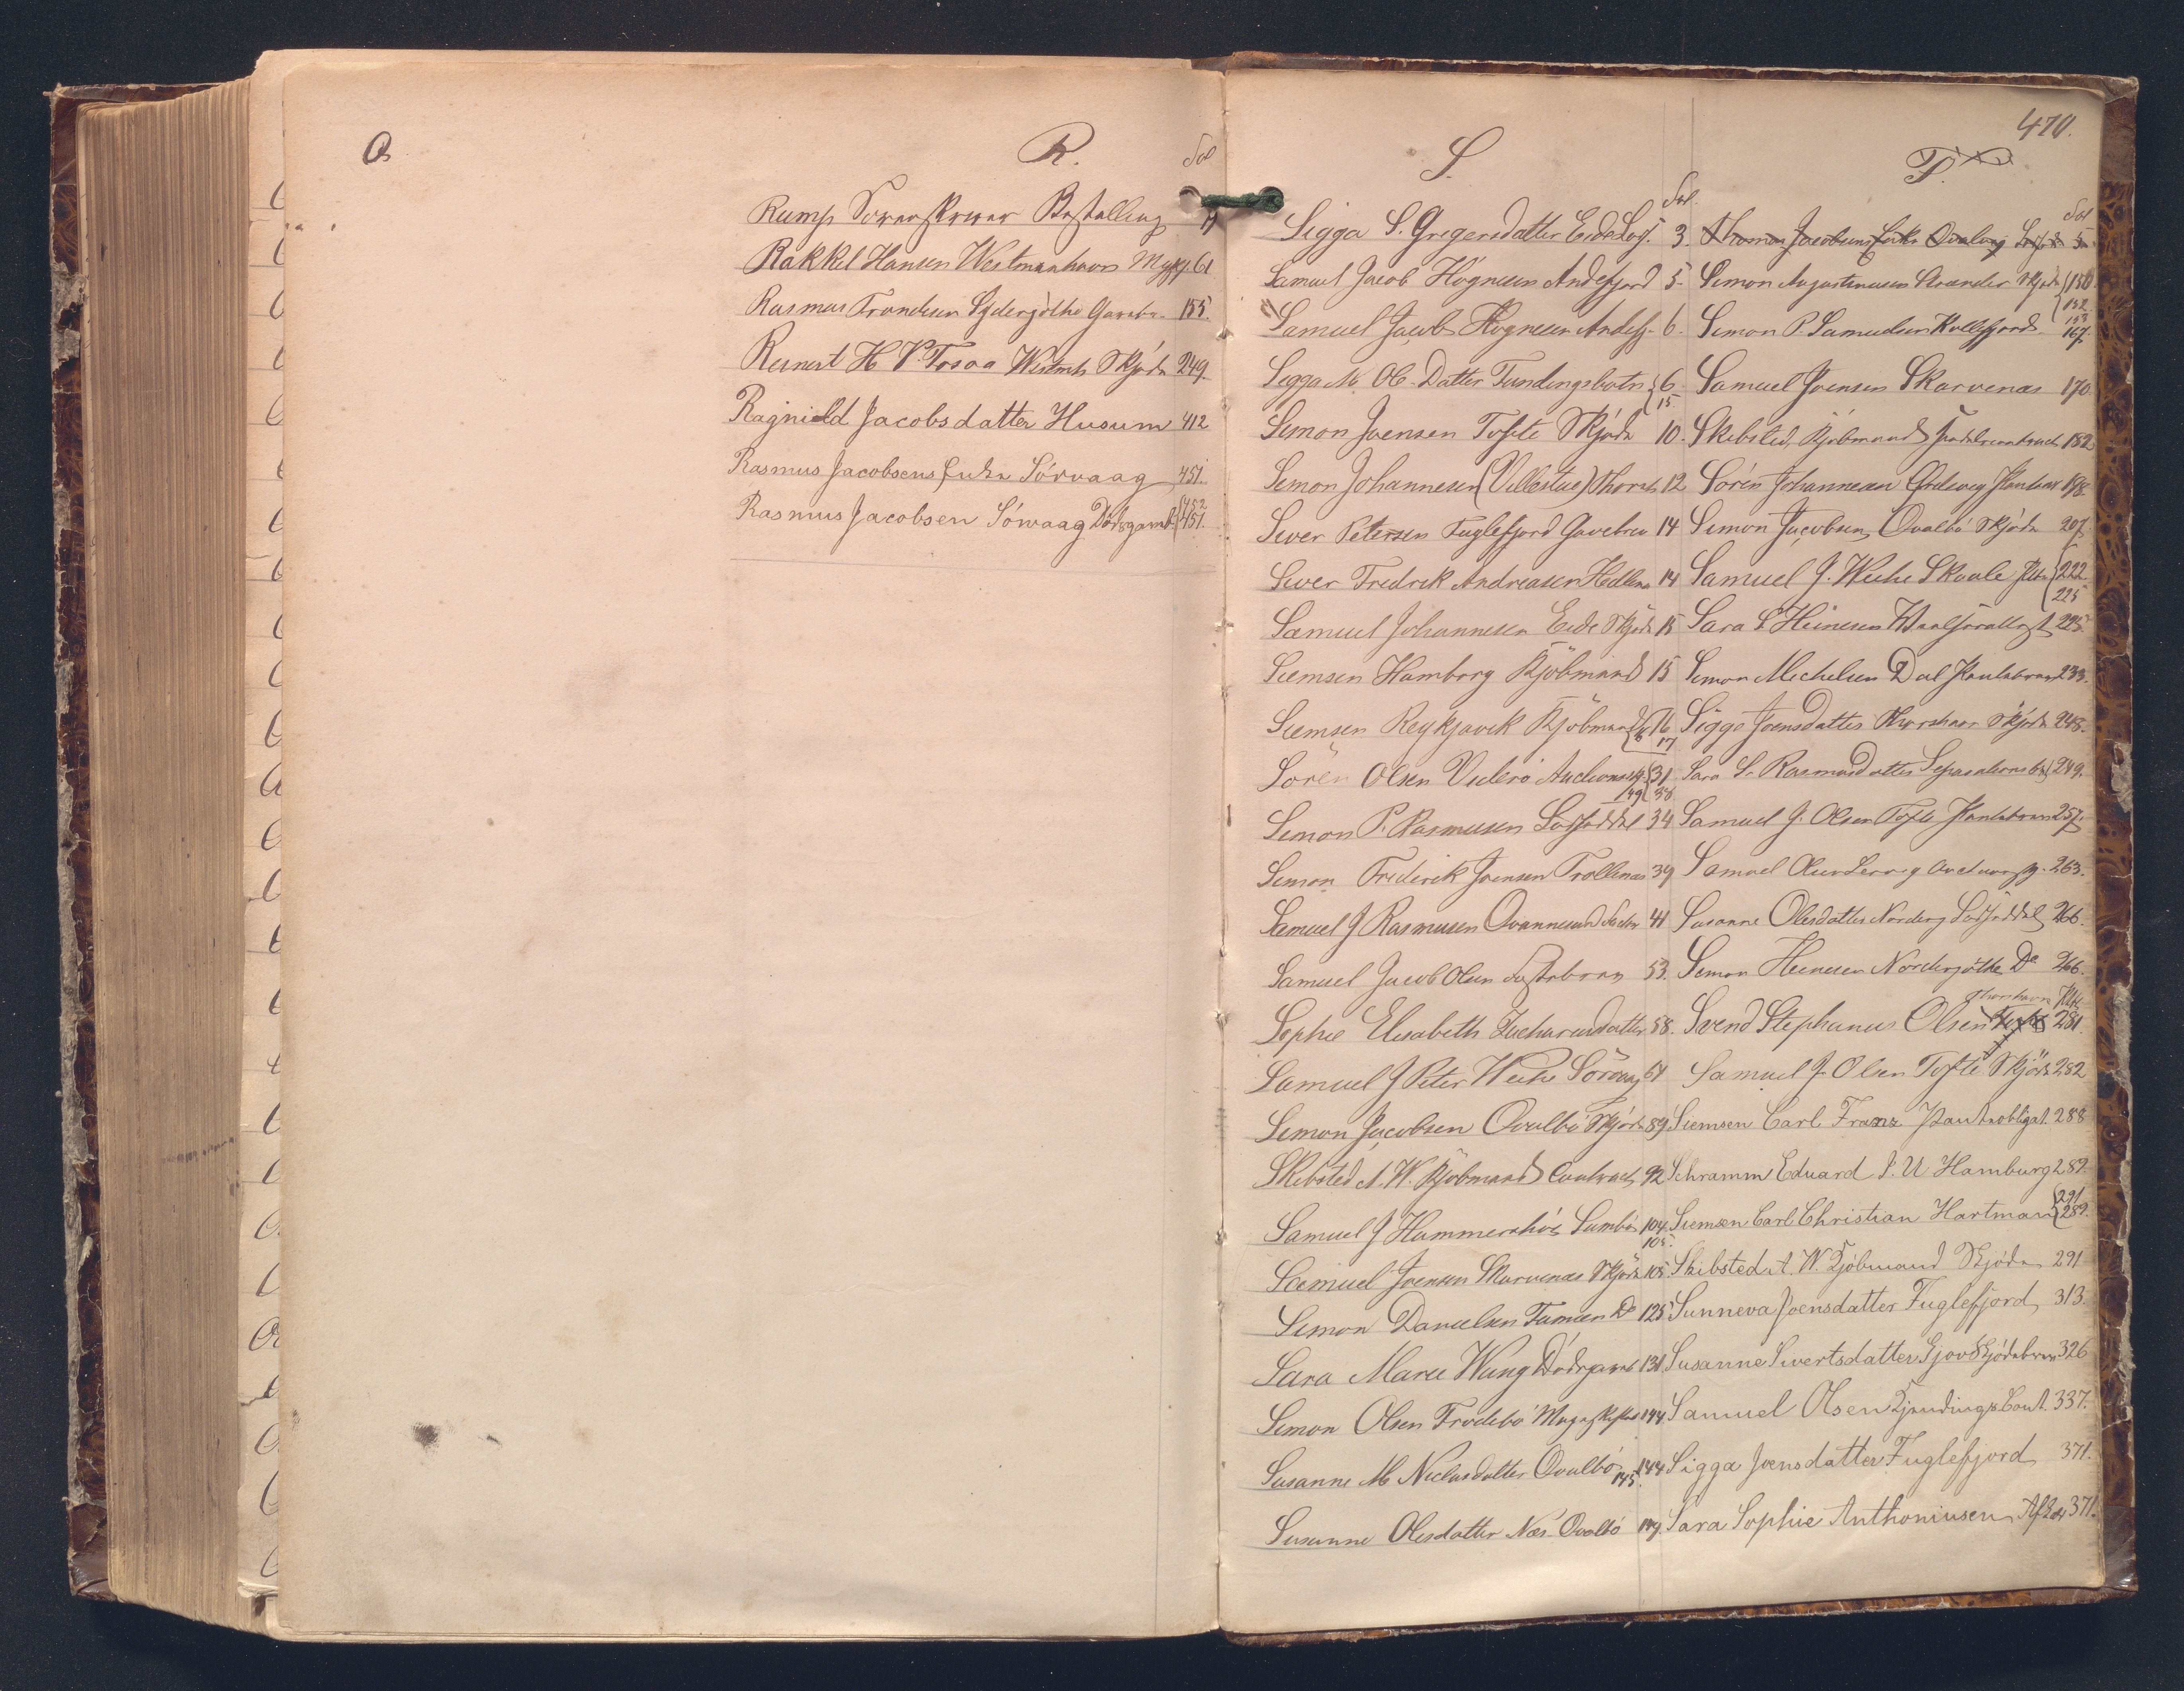 Q
R.
Fol
Rump Bestalling
Rakkel Hansen Westmanhavn 61
Rasmus Trondesen Syderjóthe Gavebr. 155.
Reinert H Westmh Skjøde 249.
Ragnild Jacobsdatter Husum 412
Rasmus Jacobsens Enke Sórvaag 451.
Rasmus Jacobsen Sórvaag Dødsgaveb. 452 451.
470.
S.
Fol.
Sigga S. Gregersdatter Eide 3.
Samuel Jacob Högnesen Andefjord 5.
Samuel Jacob Högnesen Andefj. 6.
Sigga M. Ol. Datter Tundingsbotn 6. 15
Simon Joensen Tofte Skjøde 10.
Simon Johannesen (Villestue) Thorsh 12
Siver Petersen Fuglefjord Gavebrev 14
Siver Fredrik Andreasen 14
Samuel Johannesen Eide Skjøde 15
Siemsen Hamborg Kjöbmand 15
Siemsen Reykjavik Kjöbmand 16 17
Sören Olsen Viderö 31 38 149
Simon P. Rasmusen 34
Simon Friderik Joensen Trollenas 39
Samuel J Rasmusen Qvannesund 41
Samuel Jacob Olsen 53.
Sophie Elisabeth Zachariasdatter 58.
Samuel J Peter Weihe Sörvaag 61
Simon Jacobsen Qvalbö Skjøde 89
Skibsted A. W. Kjöbmand Contract 92
Samuel J Hammershöi Sumbö 104. 105.
Samuel Joensen Skarvenas Skjøde 105
Simon Danielsen Famien Do 125
Sara Marie Wang Dødsgaveb 131
Simon Olsen Frodebö 144
Susanne M Niclasdatter Qvalbö 144 145.
Susanne Olesdatter Nes Qvalbö 149
T.
Fol
Thomas Jacobsens Enke Qvalvig 5
Simon Augustinusen Strander Skjøde 150 152 153
Simon P. Samuelsen Kollefjord 167.
Samuel Joensen Skarvenas 170
Skibsted, Kjöbmand 182
Sörin Johannesen 198.
Simon Jacobsen Qvalbö Skjøde 207.
Samuel J. Weihe Skaale 222. 225
Sara S Heinesen 225.
Simon Michelsen Dal Pantebrev 233.
Sigga Joensdatter Thorshavn Skjøde 248.
Sara S. Rasmusdatter 249.
Samuel J. Olsen Tofte Pantebrev 257.
Samuel Olsen 263.
Susanne Olesdatter 266.
Simon Heinesen Norderjóthe Do 266.
Svend Stephanus Olsen Thorshavn 281.
Samuel J. Olsen Tofte Skjöde 282
Siemsen Carl Franz Pantobligat. 288
Schramm Eduard Hamburg 289
Siemsen Carl Christian Hartman 291 289.
Skibsted A. W. Kjöbmand Skjøde 291
Sunneva Joensdatter Fuglefjord 313.
Susanne Sivertsdatter Gjov Skjødebrev 326
Samuel Olsen Kjendings Cont. 337.
Sigga Joensdatter Fuglefjord 371.
Sara Sophie Anthoniusen 371.